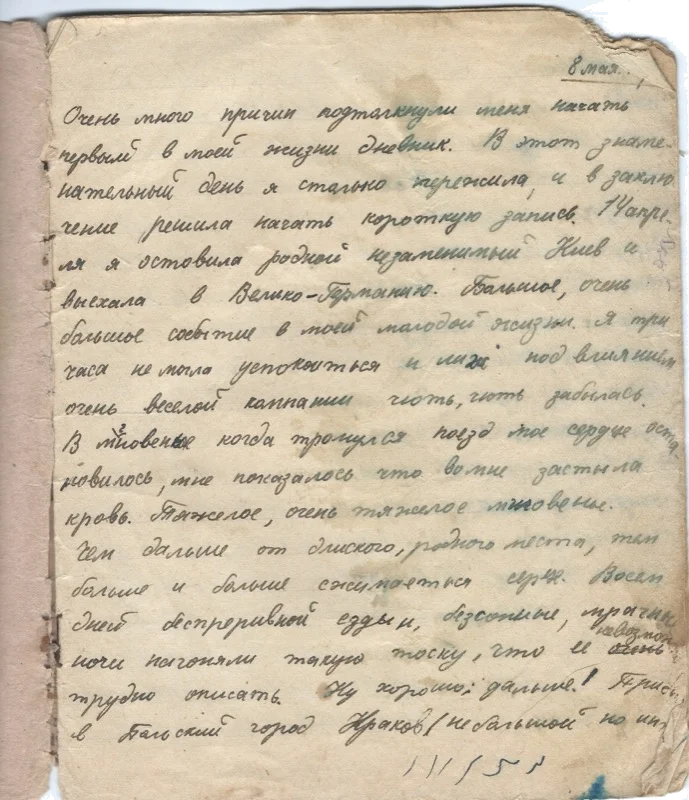 8 мая.
Очень много причин подтолкнули меня начать
первый в моей жизни дневник. В этот знаме-
нательный день я столько пережила, и в заклю
чение решила начать короткую запись. 14 апре-
ля я оставила родной незаменимый Киев и
выехала в Велико-Германию. Большое, очень
большое событие в моей молодой жизни. Я три
часа не могла успокоиться и лиш под влиянием
очень веселой компании чють, чють забылась.
В мгновенье когда тронулся поезд мое сердце оста
новилось, мне показалось что во мне застыла
кровь. Тяжелое, очень тяжелое мгновенье.
Чем дальше от близкого, родного места, тем
больше и больше сжимаеться серце. Восем
дней беспреривной езды и, безсонные, мрачные
невозмож
ночи нагоняли такую тоску, что ее
трудно описать. Ну хорошо; дальше!
в Польский город Краков (небольшой но ин-